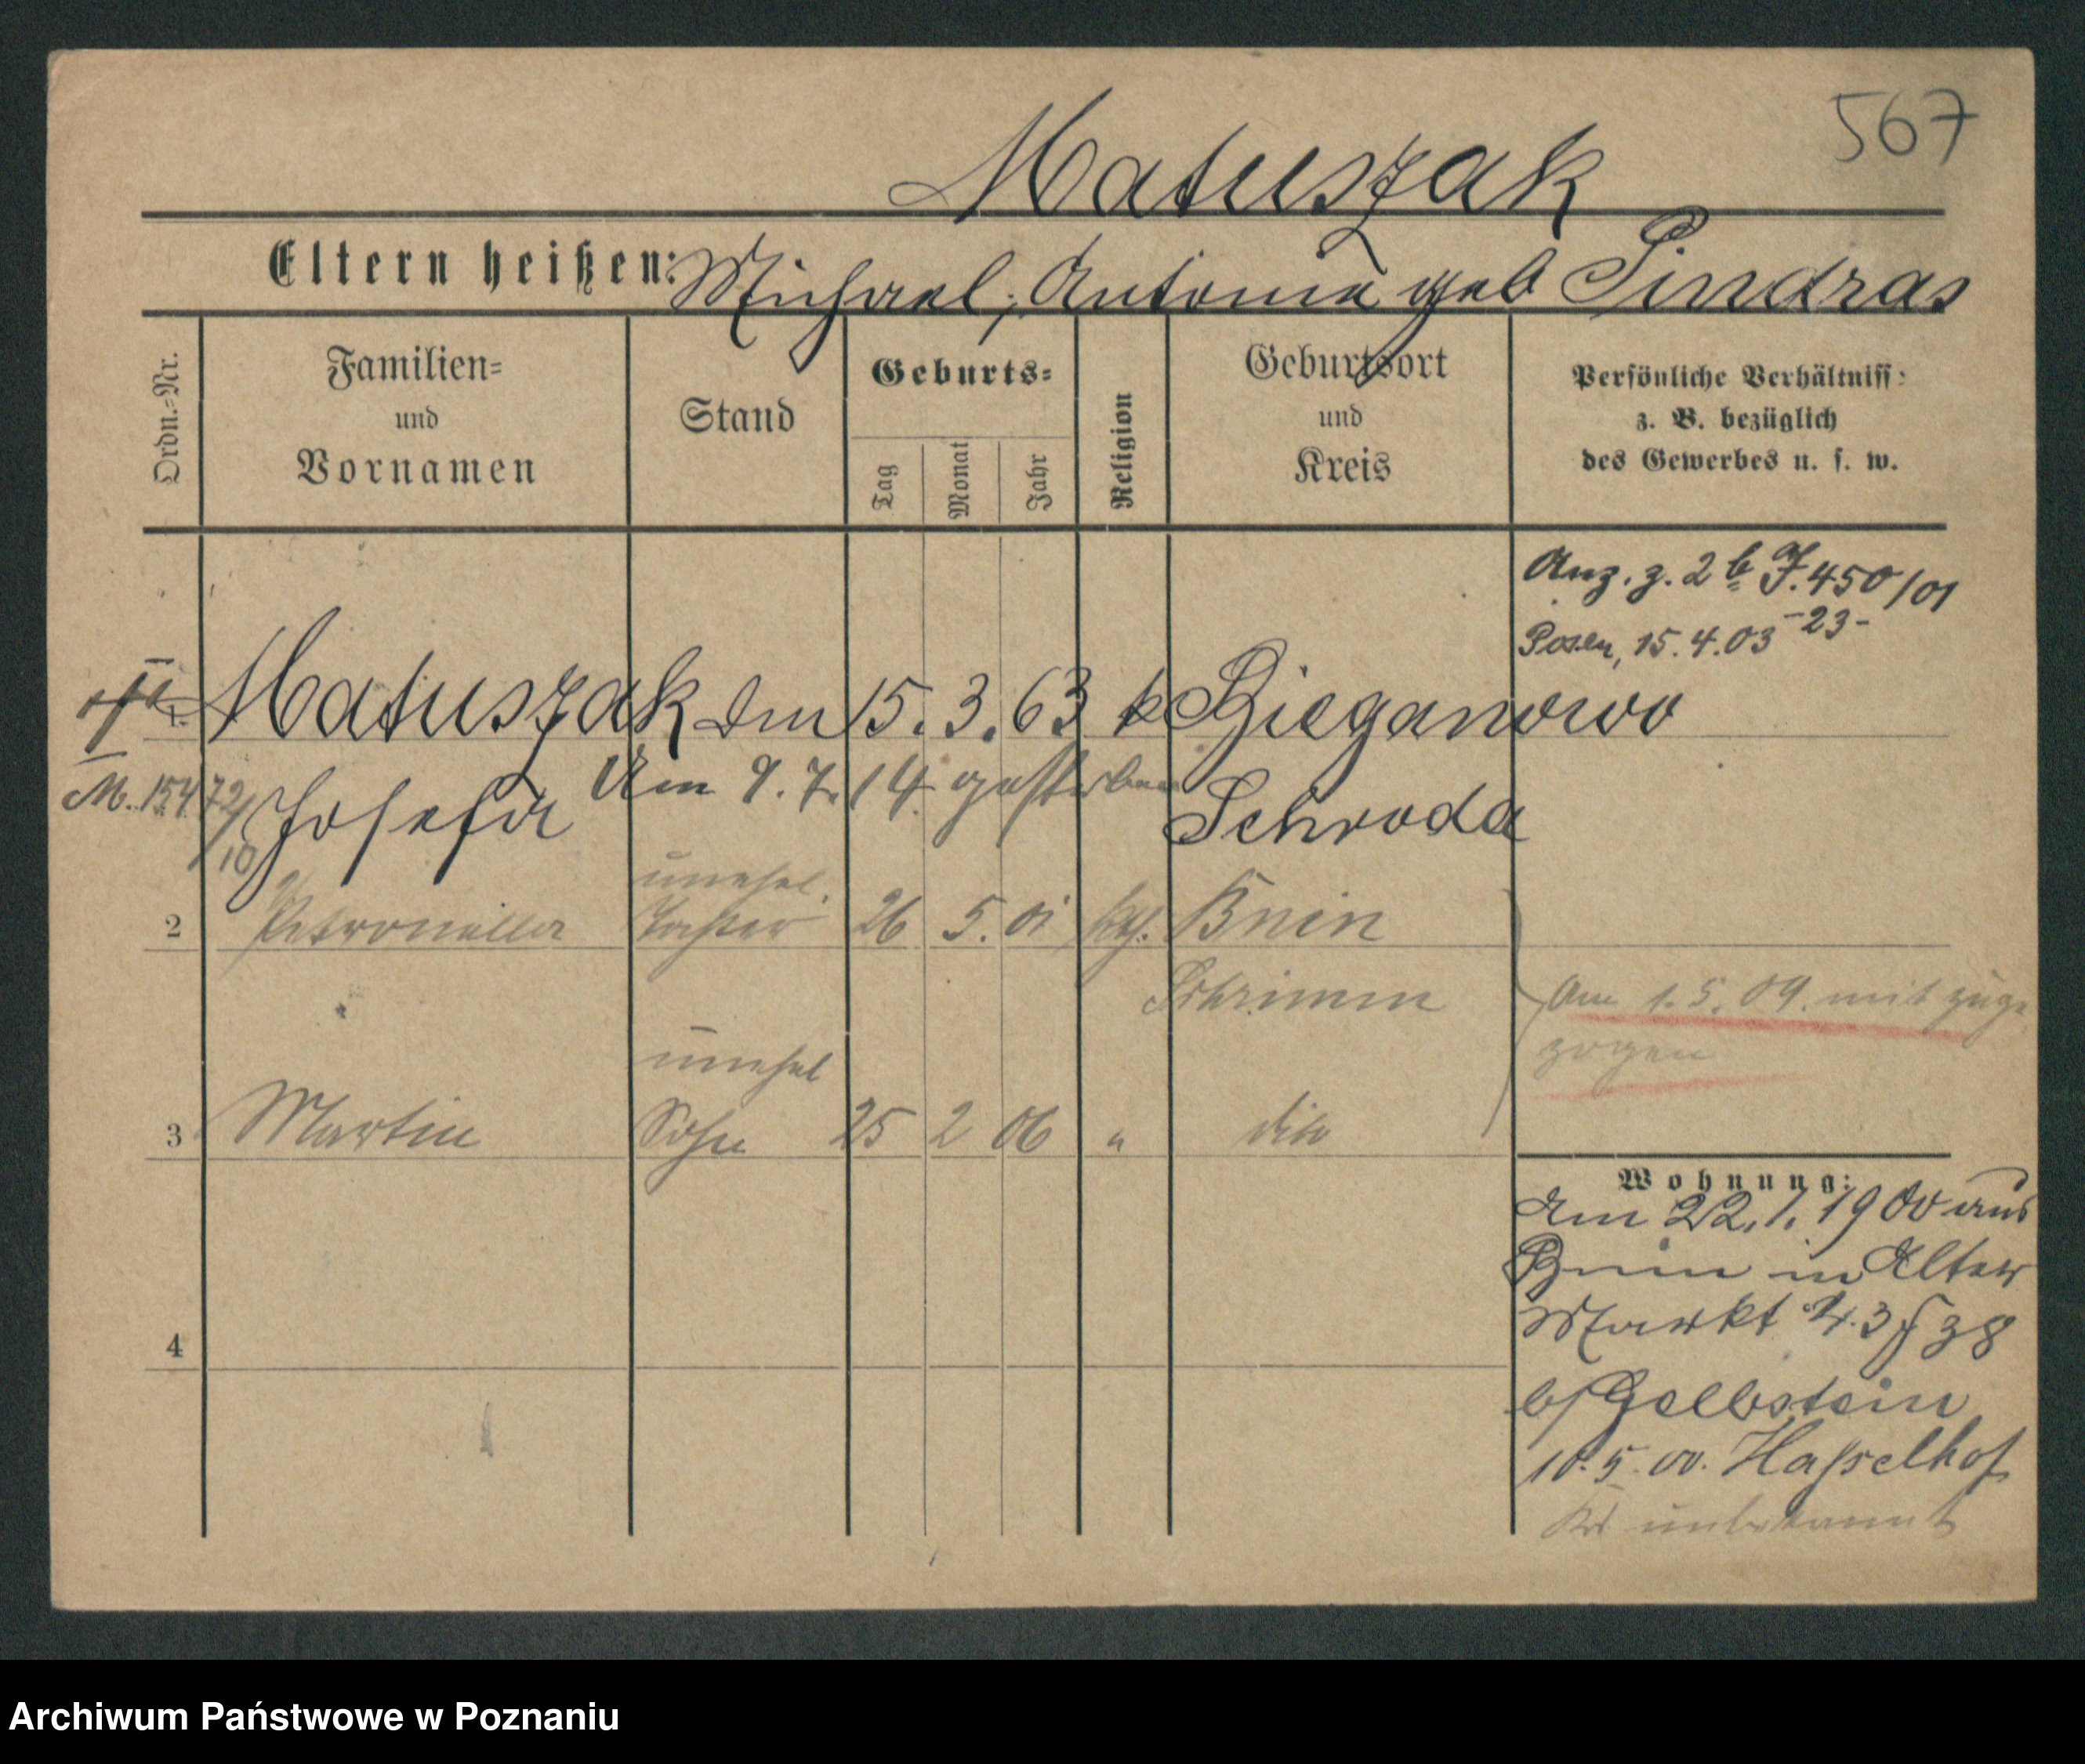 567
Matuszak
Eltern heißen: Michael, Antonie geb Sindras
Ordn.-Nr.
Familien= und Vornamen
Stand
Geburts=
Tag
Monat
Jahr
Religion
Geburtsort und Kreis
Persönliche Verhältniss:
z. B. bezüglich
des Gewerbes u. s. w.
Anz. z. 2 b J. 450/01
-23-
Posen, 15.4.03
1. Matuszak 15. 3. 63 k Bieganowo
M. 15472/10 Josefa Am 9. 7. 14 gestorben Schroda
unehel.
2 Petronella Tochter 26 5. 01 kth. Bnin
Schrimm
Am 1. 5. 09. mit zuge
zogen
unehel
3 Martin Sohn 25 2 06 " dito
Wohnung:
Am 22. 1. 1900 aus
Bnin in Alter
Markt N. 3 f 38
b/ Gelbstein
10. 5. 00. Hasselhof
unbekannt
4
Archiwum Państwowe w Poznaniu